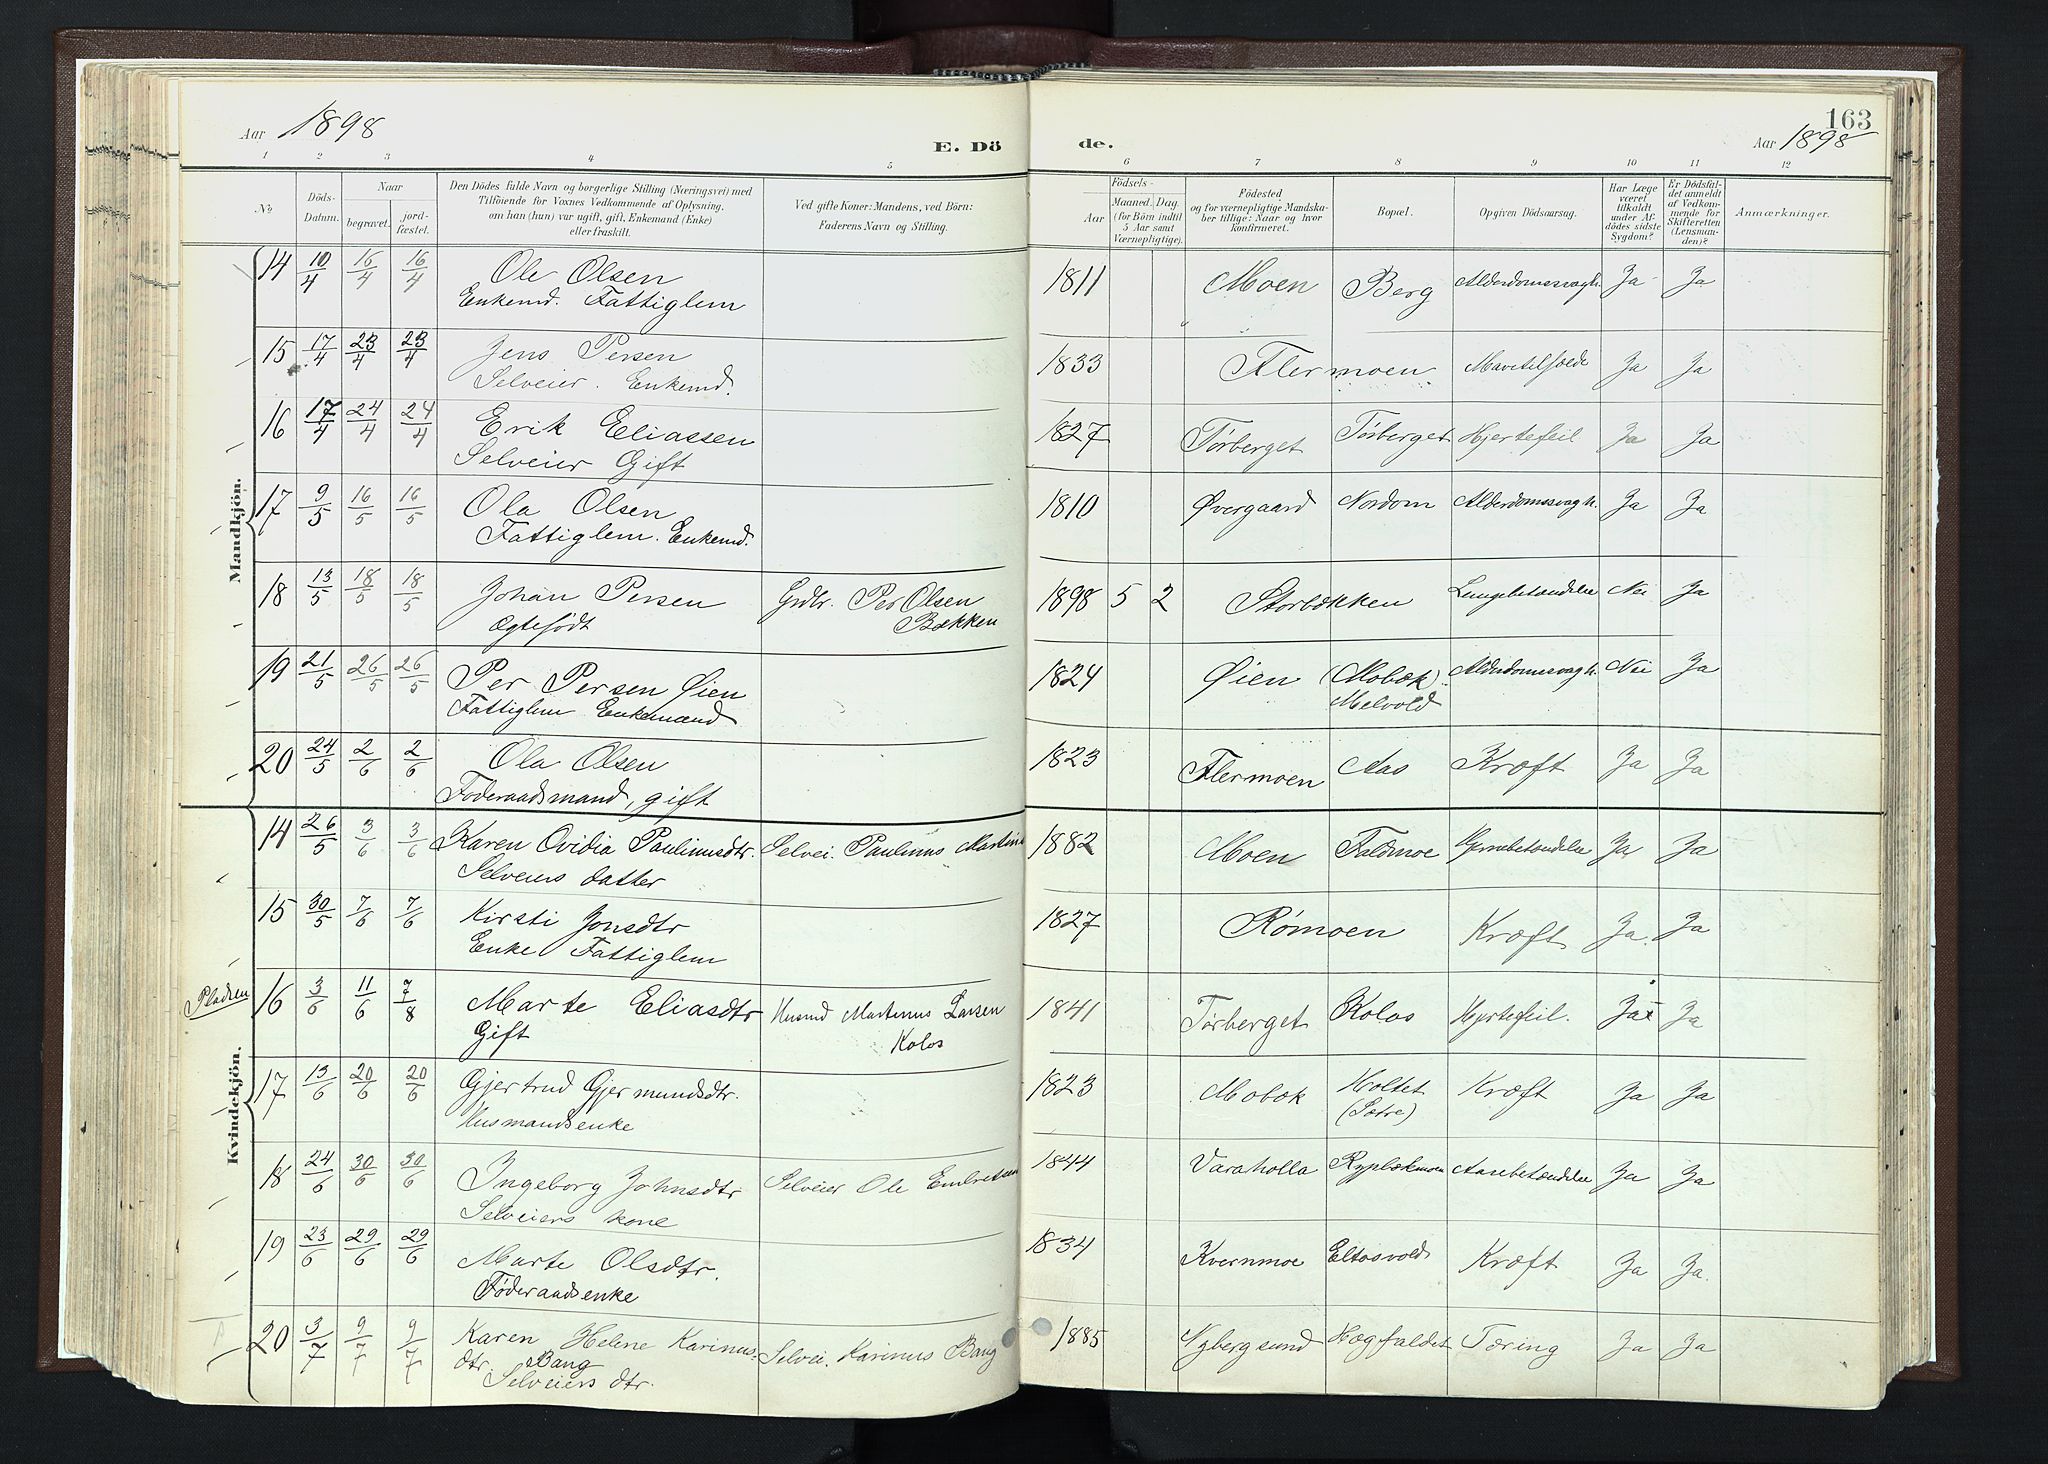 Aar 1898
E. Dö
de.
163
Aar 1898
1 2 3 4 5 6 7 8 9 10 11 12
№
Döds-Datum.
Naar
begravet.
jord-fæstet.
Den Dödes fulde Navn og borgerlige Stilling (Næringsvei) med
Tilföiende for Voxnes Vedkommende af Oplysning,
om han (hun) var ugift, gift, Enkemand (Enke)
eller fraskilt.
Ved gifte Koner: Mandens, ved Börn:
Faderens Navn og Stilling.
Födsels-
Aar
Maaned. Dag.
(for Börn indtil
5 Aar samt
Værnepligtige).
Födested
og for værnepligtige Mandska-
ber tillige: Naar og hvor
konfirmeret.
Bopæl.
Opgiven Dödsaarsag.
Har Læge
været
tilkaldt
under Af-
dödes sidste
Sygdom?
Er Dödsfal-
det anmeldt
af Vedkom-
mende for
Skifteretten
(Lensman-
den)?
Anmærkninger.
Mandkjön.
14 10/4 16/4 16/4 Ole Olsen 1811 Moen Berg Alderdomssvagh. Ja Ja
Enkemd. Fattiglem
15 17/4 23/4 23/4 Jens Persen 1833 Flermoen Mavetilfælde Ja Ja
Selveier. Enkemd.
16 17/4 24/4 24/4 Erik Eliassen 1827 Törberget Törberget Hjertefeil Ja Ja
Selveier Gift
17 9/5 16/5 16/5 Ola Olsen 1810 Øvergaard Nordom Alderdomssvagh. Ja Ja
Fattiglem. Enkemd.
18 13/5 18/5 18/5 Johan Persen Grdbr. Per Olsen 1898 5 2 Storbækken Lungebetændelse Nei Ja
Ægtefødt Bækken
19 21/5 26/5 26/5 Per Persen Øien 1824 Øien (Mobæk) Alderdomssvagh. Nei Ja
Fattiglem Enkemand Melvold
20 24/5 2/6 2/6 Ola Olsen 1823 Flermoen Aas Kræft Ja Ja
Föderaadsmand, gift
Kvindekjön.
14 26/5 3/6 3/6 Karen Ovidia Paulinusdtr. Selvei. Paulinus 1882 Moen Faldmoe Ja Ja
Selveiers datter
15 30/5 7/6 7/6 Kirsti Jonsdtr 1827 Rømoen Kræft Ja. Ja
Enke Fattiglem
Pladsen
16 3/6 11/6 7/8 Marte Eliasdtr Husmd Martinus Larsen 1841 Törberget Kolos Hjertefeil. Ja x Ja
Gift Kolos
17 13/6 20/6 20/6 Gjertrud Gjermundsdtr. 1823 Mobæk Holtet Kræft Ja Ja
Husmandsenke (Sætre)
18 24/6 30/6 30/6 Ingeborg Johnsdtr Selveier Ole Embretsen 1844 Varaholla Ryplækmoen Aarebetændelse Ja Ja
Selveiers kone
19 23/6 29/6 29/6 Marte Olsdtr. 1834 Kvernmoe Eltasvold Kræft Ja Ja.
Föderaadsenke
20 3/7 9/7 9/7 Karen Helene Karinus- Selvei. Karinus Bang 1885 Nybergsund Hægfaldet Tæring Ja Ja
dtr. Bang
Selveiers dtr.